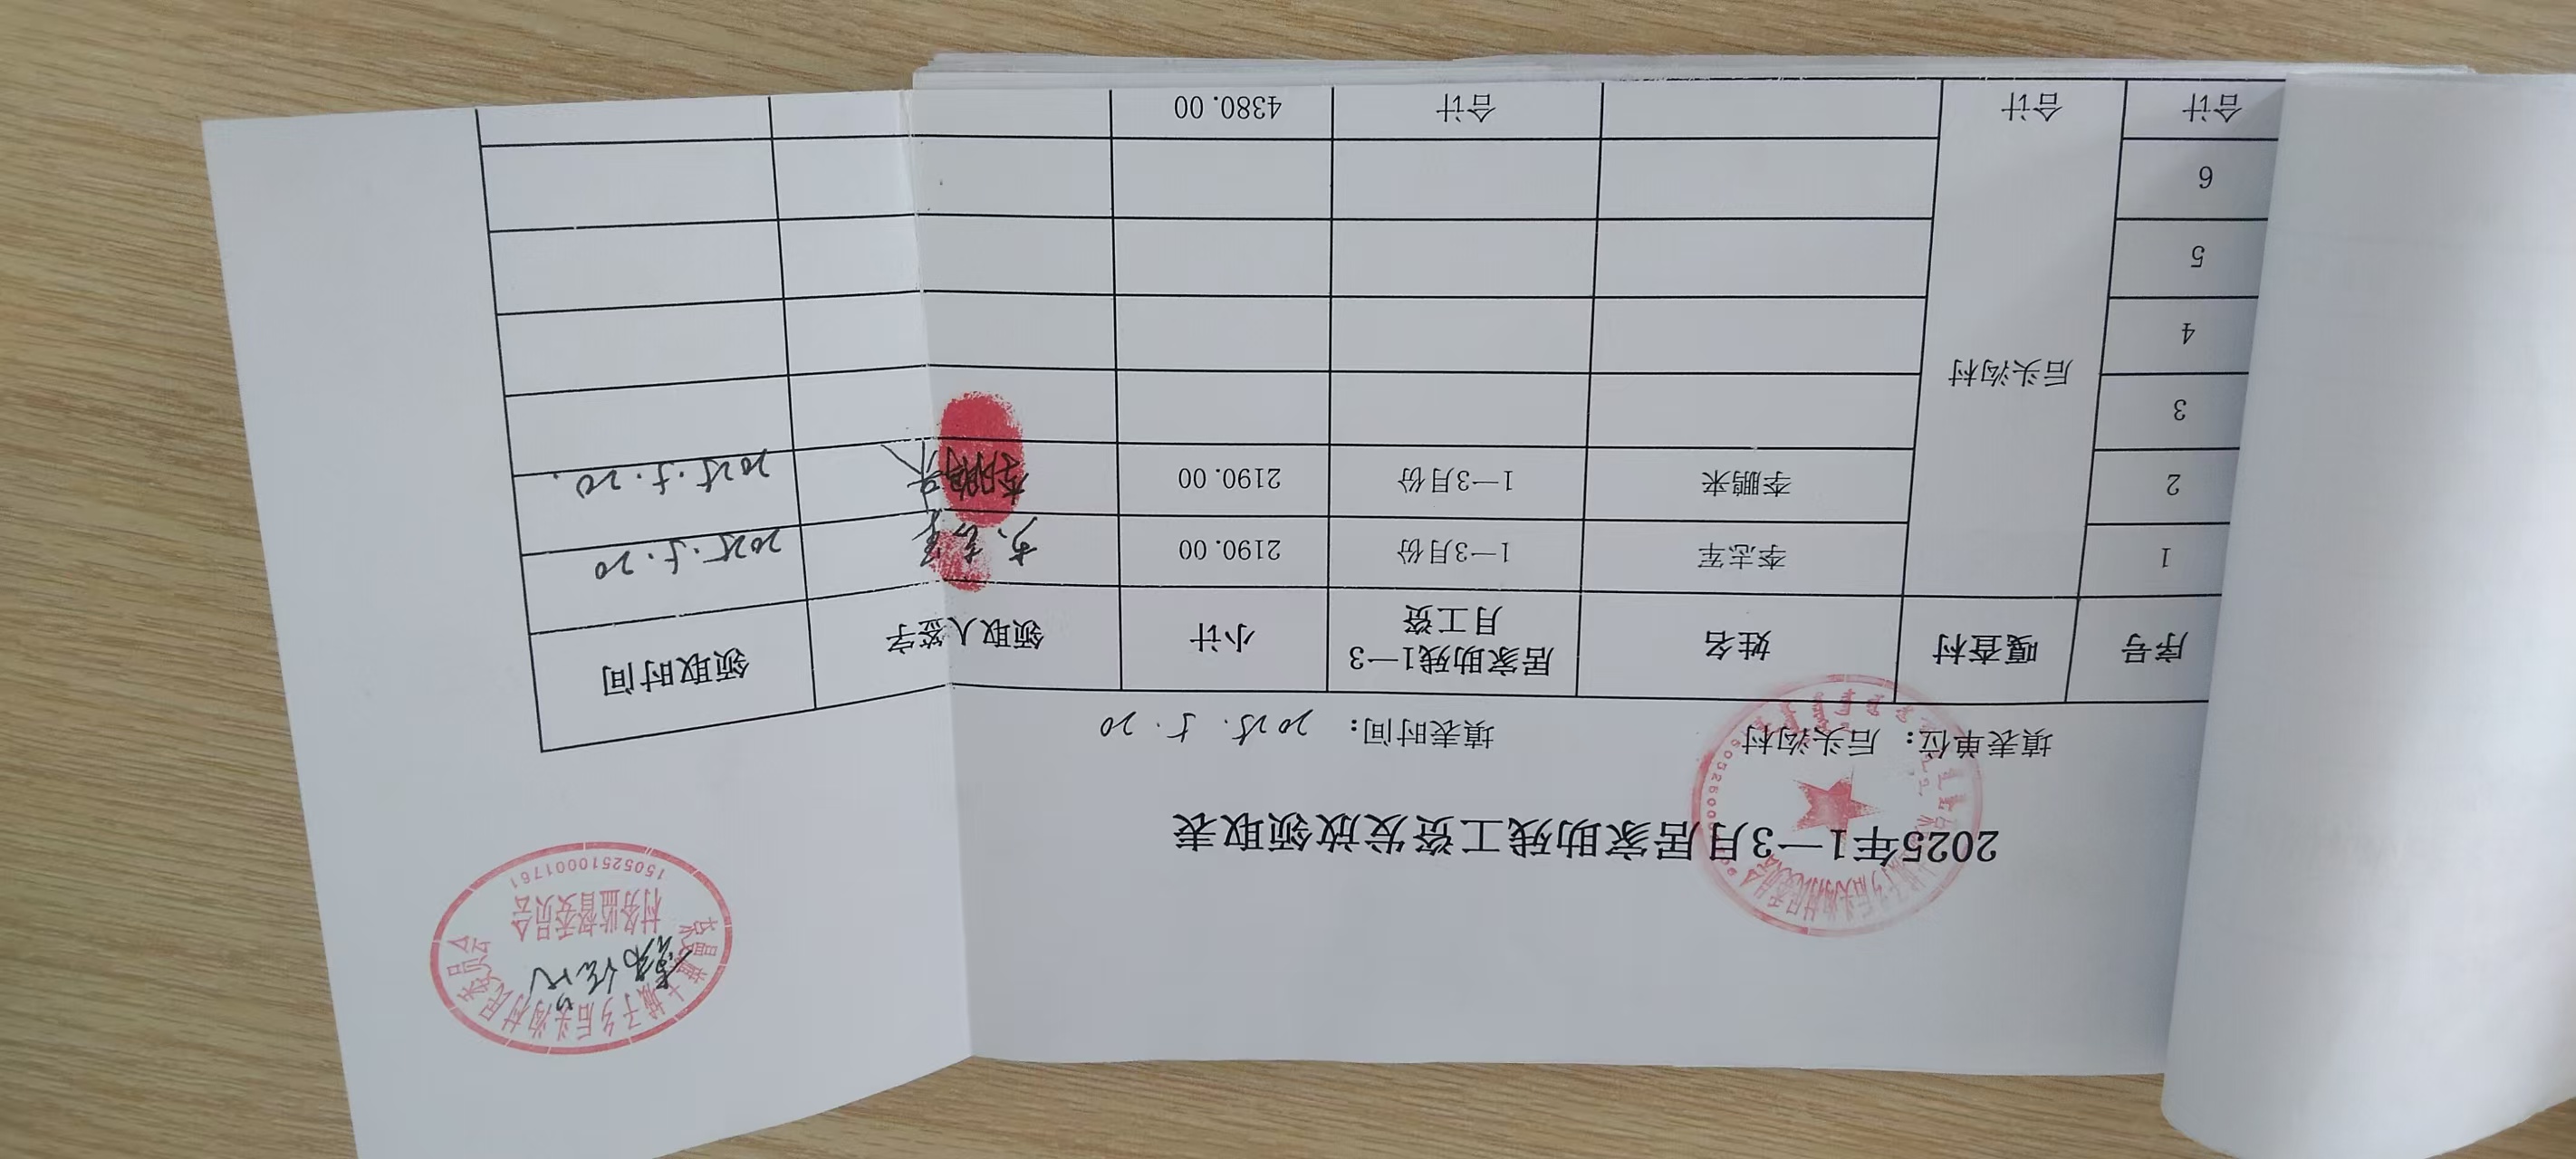 2025年1—3月居家助残工资发放领取表
填表单位：后头沟村 填表时间：2025.5.20
序号 嘎查村 姓名 居家助残1—3月工资 小计 领取人签字 领取时间
1 后头沟村 李志军 1—3月份 2190.00 李志军 2025.5.20
2 李鹏来 1—3月份 2190.00 李鹏来 2025.5.20.
3
4
5
6
合计 合计 合计 4380.00
土城子乡后头沟村民委员会
村务监督委员会
15052510001761